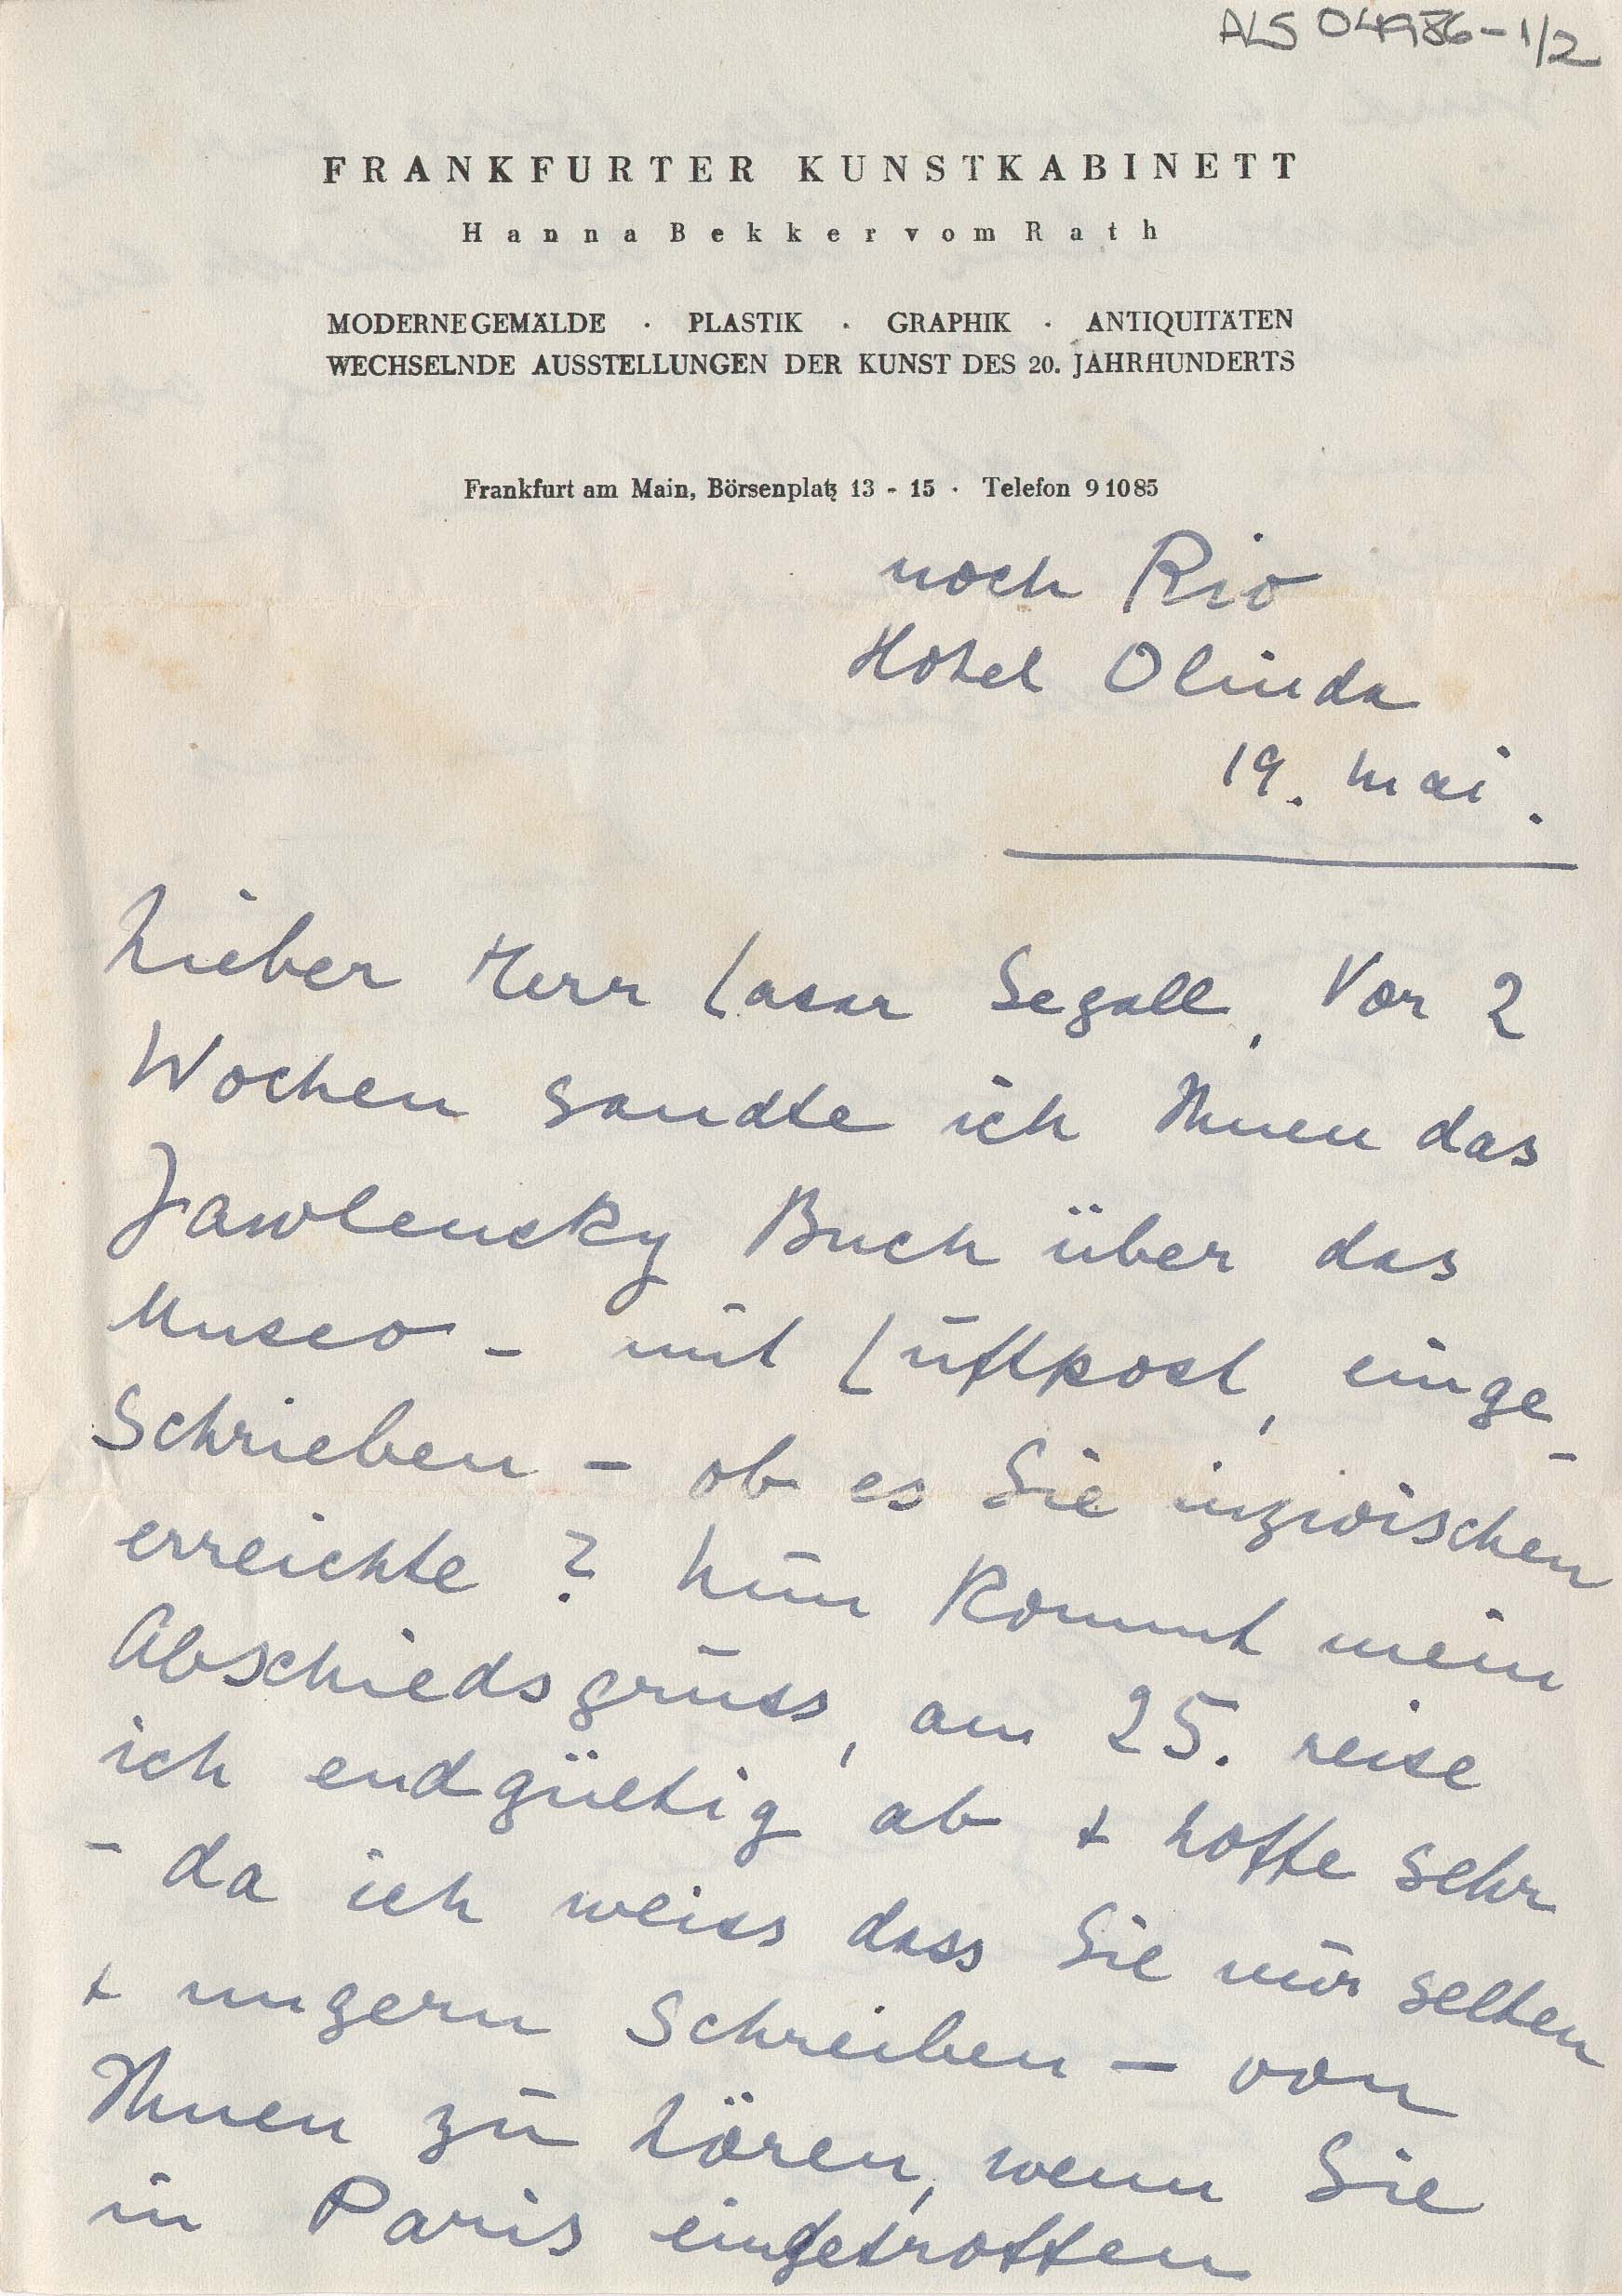 ALS 04986-1/2
FRANKFURTER KUNSTKABINETT
Hanna Bekker vom Rath
MODERNE GEMÄLDE · PLASTIK · GRAPHIK · ANTIQUITÄTEN
WECHSELNDE AUSSTELLUNGEN DER KUNST DES 20. JAHRHUNDERTS
Frankfurt am Main, Börsenplatz 13 - 15 · Telefon 9 10 85
noch Rio
Hotel Olinda
19. Mai.
Lieber Herr Lasar Segall, Vor 2
Wochen sandte ich Ihnen das
Jawlensky Buch über das
Museo - mit Luftpost, einge-
schrieben - ob es Sie inzwischen
erreichte? Nun kommt mein
Abschiedsgruss, am 25. reise
ich endgültig ab + hoffe sehr
- da ich weiss dass Sie nur selten
+ ungern schreiben - von
Ihnen zu hören, wenn Sie
in Paris eingetroffen